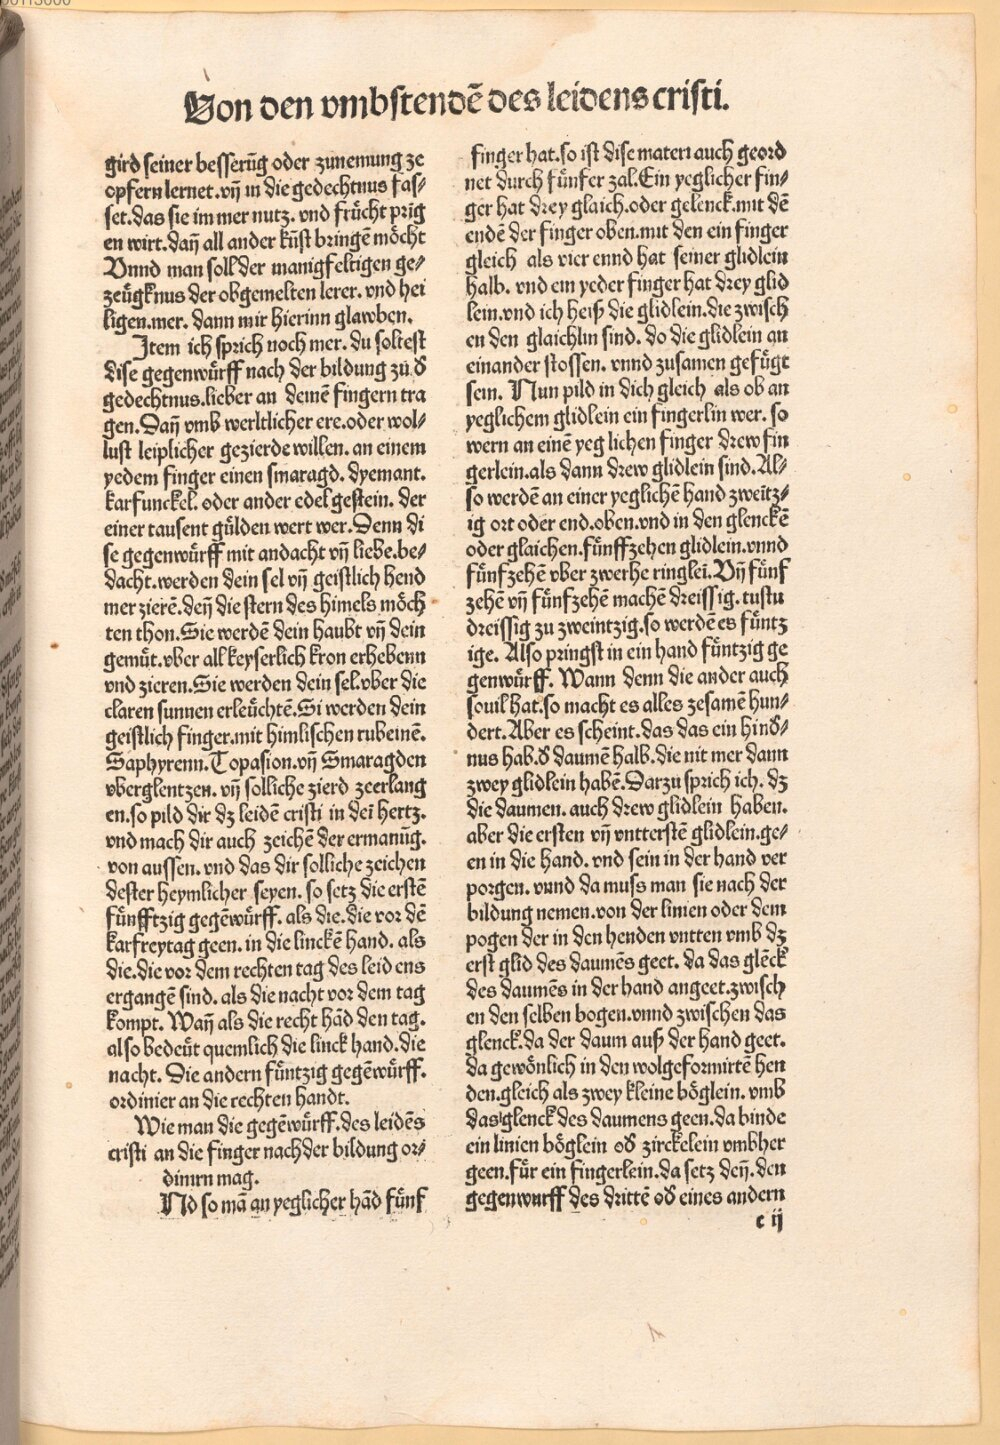 Von den vmbstendē des leidens cristi.
gird seiner besserūg oder zunemung ze
opfern lernet.vñ in die gedechtnus fas⸗
set.das sie im mer nutz. vnd frücht prīg
en wirt.dañ all ander kūst bringē möcht
Vnnd man soll der manigfeltigen ge⸗
zeügknus der obgemelten lerer. vnd hei
ligen.mer. dann mir hierinn glawben.
Item ich sprich noch mer. du soltest
dise gegenwürff nach der bildung zů d̄
gedechtnus.lieber an deinē fingern tra
gen.Dañ vmb werltlicher ere.oder wol⸗
lust leiplicher gezierde willen. an einem
yedem finger einen smaragd. dyemant.
karfunckel. oder ander edel gestein. der
einer tausent gülden wert wer.Denn di
se gegenwürff mit andacht vñ liebe.be⸗
dacht.werden dein sel vñ geistlich hend
mer zierē.deñ die stern des himels möch
ten thon.Sie werdē dein haubt vñ dein
gemüt.vber all keyserlich kron erhebenn
vnd zieren.Sie werden dein sel.vber die
claren sunnen erleüchtē.Si werden dein
geistlich finger.mit himlischen rubeinē.
Saphyrenn.Topasion.vñ Smaragden
vberglentzen. vñ solliche zierd zeerlang
en.so pild dir dz leidē cristi in deī hertz.
vnd mach dir auch zeichē der ermanūg.
von aussen. vnd das dir solliche zeichen
dester heymlicher seyen. so setz die erstē
fünfftzig gegēwürff. als die.die vor dē
karfreytag geen. in die linckē hand. als
die.die vor dem rechten tag des leid ens
ergangē sind. als die nacht vor dem tag
kompt. Wañ als die recht hād den tag.
also bedeüt quemlich die linck hand.die
nacht. Die andern füntzig gegēwürff.
ordinier an die rechten handt.
Wie man die gegēwürff.des leidēs
cristi an die finger nach der bildung or⸗
dinirn mag.
Nd so mā an yeglicher hād fünf
finger hat.so ist dise materi auch geord
net durch fünfer zal.Ein yeglicher fin⸗
ger hat drey glaich.oder gelenck.mit dē
endē der finger oben.mit den ein finger
gleich als vier ennd hat seiner glidlein
halb. vnd ein yeder finger hat drey glid
lein.vnd ich heiß die glidlein.die zwisch
en den glaichlin sind. do die glidlein an
einander stossen. vnnd zusamen gefügt
sein. Nun pild in dich gleich als ob an
yeglichem glidlein ein fingerlin wer. so
wern an einē yeg lichen finger drew fin
gerlein.als dann drew glidlein sind.Al⸗
so werdē an einer yeglichē hand zweitz⸗
ig ort oder end.oben.vnd in den glenckē
oder glaichen.fünffzehen glidlein.vnnd
fünfzehē vber zwerhe ringleī.Vñ fünf
zehē vñ fünfzehē machē dreissig.tustu
dreissig zu zweintzig.so werdē es füntz
ige. Also pringst in ein hand füntzig ge
genwürff. Wann denn die ander auch
souil hat.so macht es alles zesamē hun⸗
dert.Aber es scheint.das das ein hind̄⸗
nus hab.d̄ daumē halb.die nit mer dann
zwey glidlein habē.Darzu sprich ich. dz
die daumen. auch drew glidlein haben.
aber die ersten vñ vntterstē glidlein.ge⸗
en in die hand. vnd sein in der hand ver
porgen. vnnd da muss man sie nach der
bildung nemen.von der linien oder dem
pogen der in den henden vntten vmb dz
erst glid des daumēs geet. da das glēck
des daumēs in der hand angeet.zwisch
en den selben bogen.vnnd zwischen das
glenck.da der daum auß der hand geet.
da gewönlich in den wolgeformirtē hen
den.gleich als zwey kleine böglein. vmb
das glenck des daumens geen.da binde
ein linien böglein od̄ zirckelein vmbher
geen.für ein fingerlein.da setz deñ. den
gegenwurff des drittē od̄ eines andern
c ij